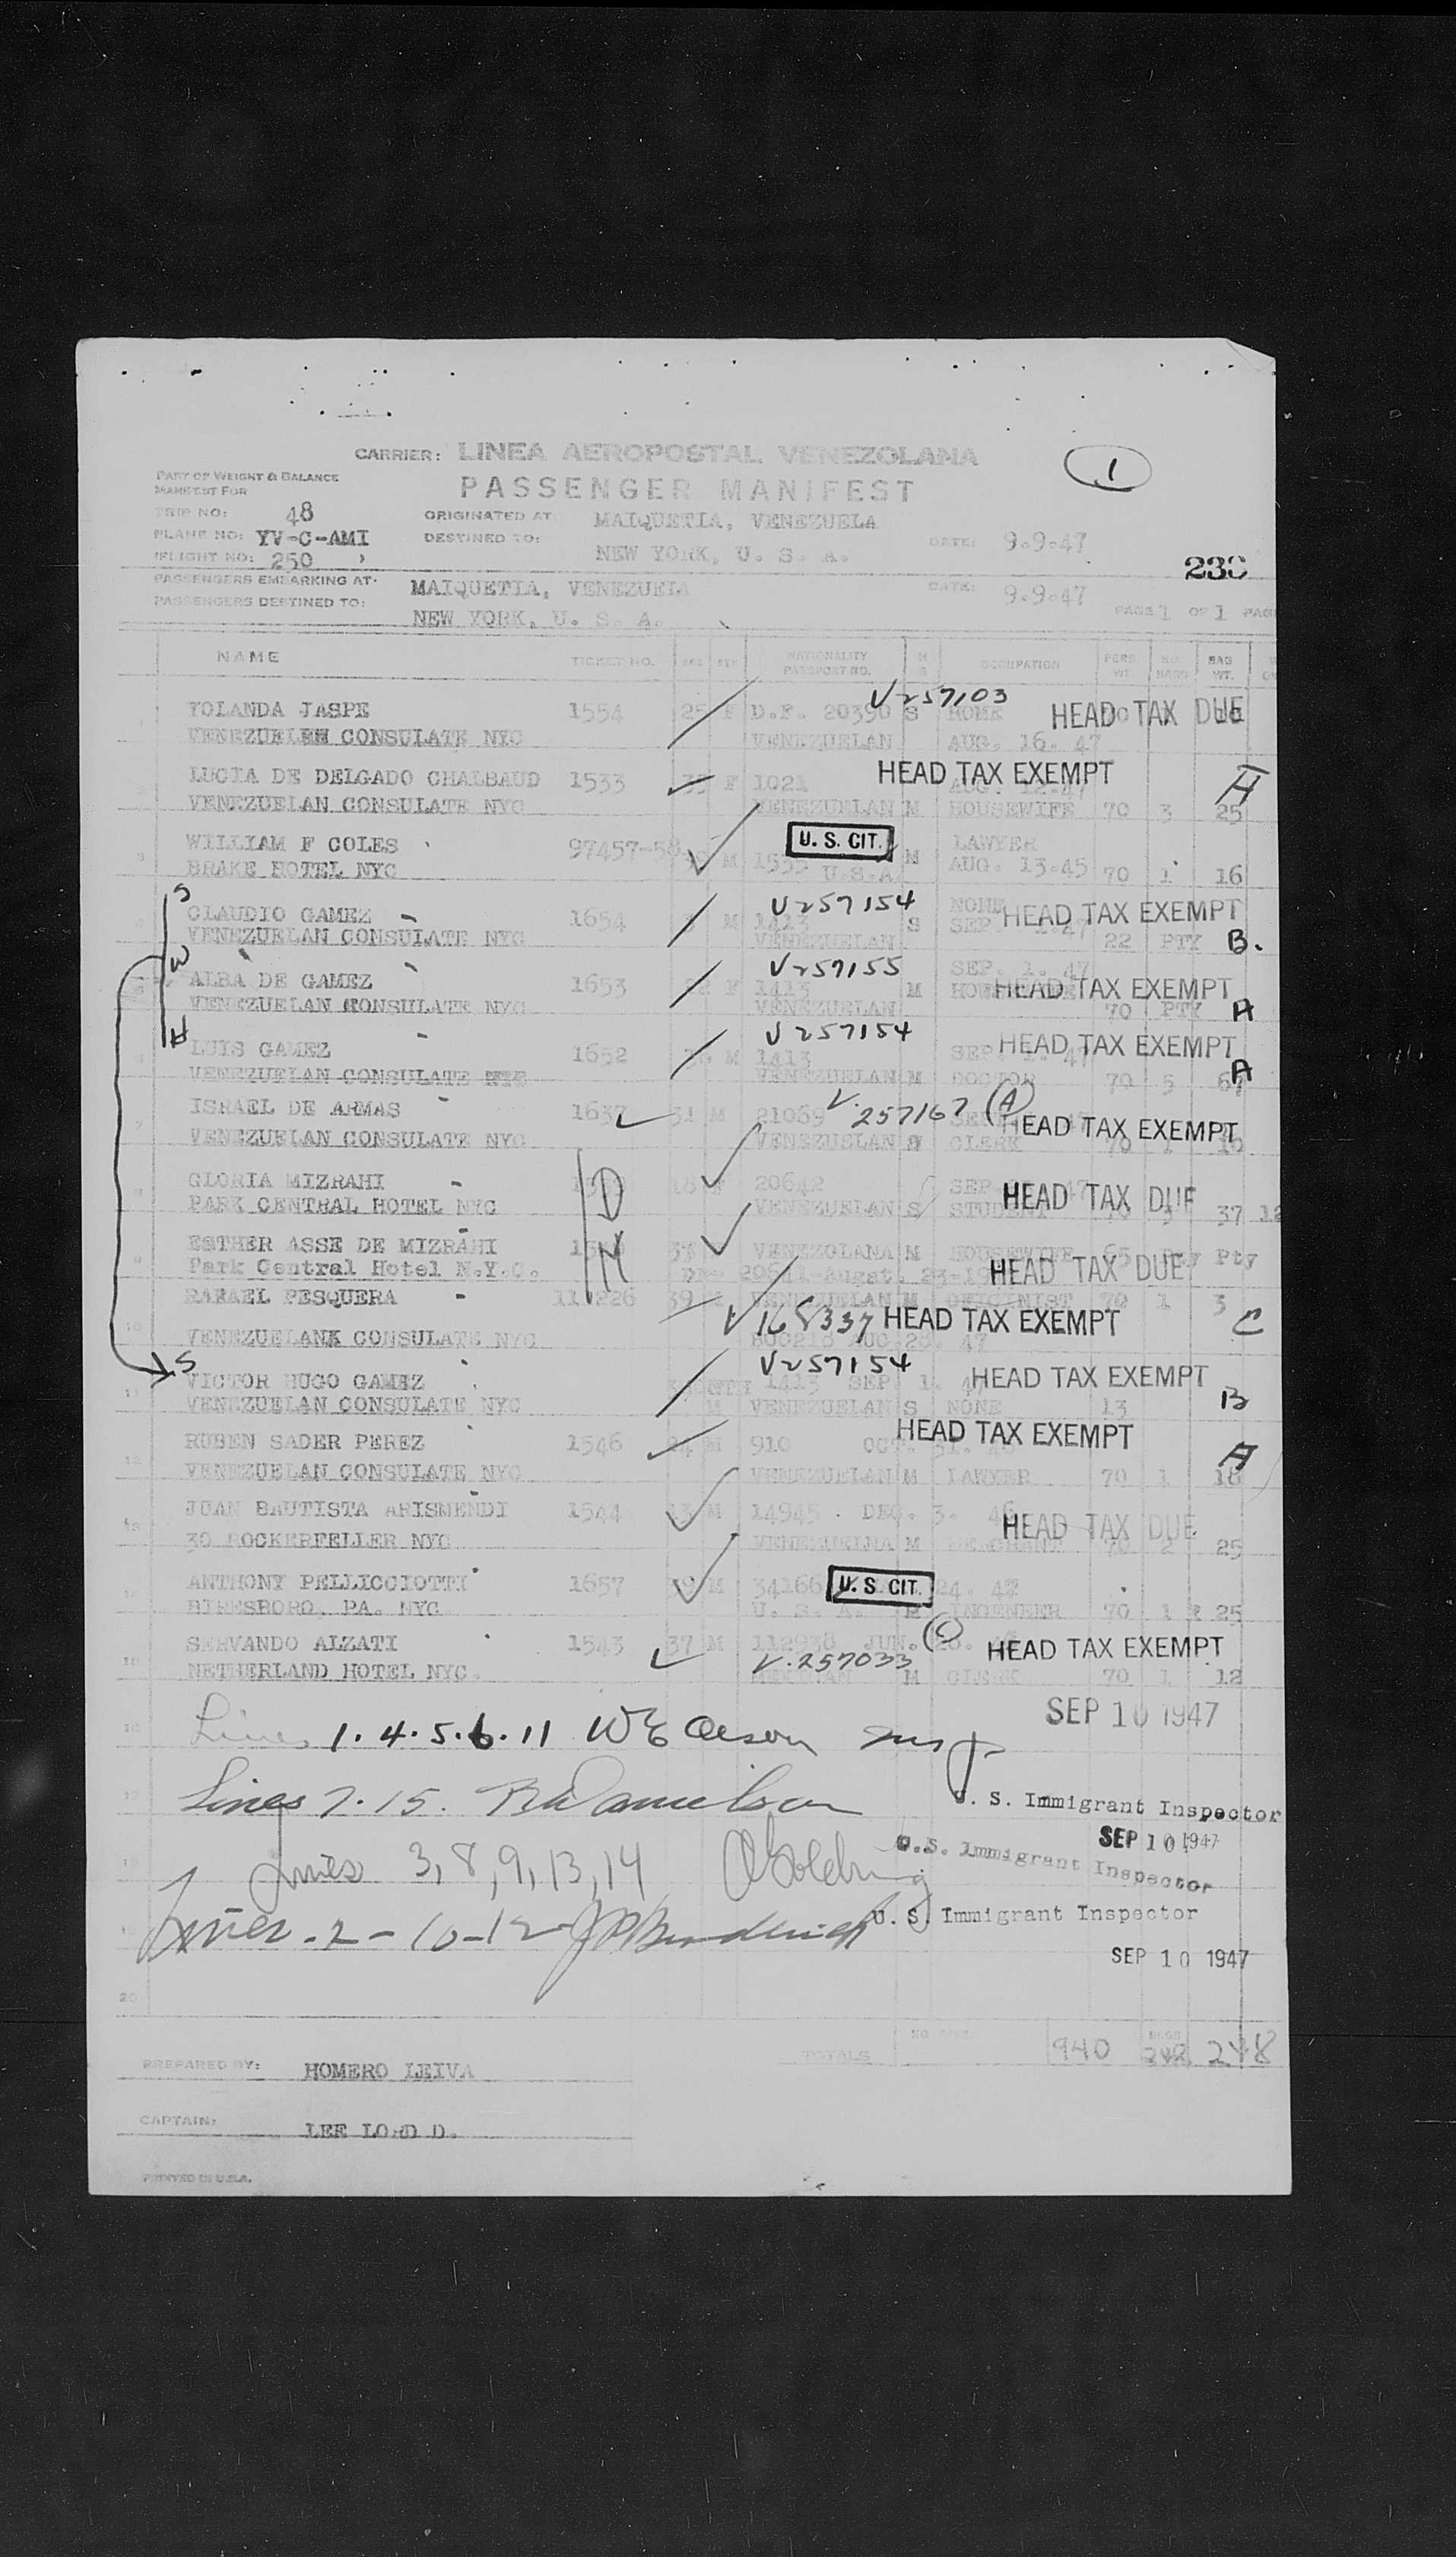 CARRIER: LINEA AEROPOSTAL VENEZOLANA
PASSENGER MANIFEST
1
PART OF WEIGHT & BALANCE
MANIFEST FOR
TRIP NO: 48
PLANE NO: YV-C-AMI
FLIGHT NO: 250
ORIGINATED AT: MAIQUETIA, VENEZUELA
DESTINED TO: NEW YORK, U. S. A.
DATE: 9.9.47
PASSENGERS EMBARKING AT: MAIQUETIA, VENEZUELA
DATE: 9.9.47
PASSENGERS DESTINED TO: NEW YORK, U. S. A.
PAGE 1 OF 1 PAG
NAME TICKET NO. AGE SEX NATIONALITY PASSPORT NO. M S OCCUPATION PERS WT. NO. BAGS BAG WT.
V257103
YOLANDA JASPE 1554 25 F D.F. 20390 S HOME HEAD TAX DUE
VENEZUELEN CONSULATE NYC VENEZUELAN AUG. 16. 47
LUCIA DE DELGADO CHALBAUD 1533 F 1021 HEAD TAX EXEMPT A
VENEZUELAN CONSULATE NYC VENEZUELAN M HOUSEWIFE 70 3 25
WILLIAM F COLES 97457-58 M U. S. CIT. M LAWYER
BRAKE HOTEL NYC U.S.A. AUG. 13.45 70 1 16
S
V257154
CLAUDIO GAMEZ 1654 M 1413 S NONE HEAD TAX EXEMPT
VENEZUELAN CONSULATE NYC VENEZUELAN 22 PTY B.
W
V257155
ALBA DE GAMEZ 1653 F 1413 M SEP. 1. 47 HEAD TAX EXEMPT
VENEZUELAN CONSULATE NYC VENEZUELAN 70 PTY A
H
V257154
LUIS GAMEZ 1652 M 1413 HEAD TAX EXEMPT
VENEZUELAN CONSULATE VENEZUELAN M DOCTOR 70 5 67 A
ISRAEL DE ARMAS 1637 31 M 21069 V.257167 (A) HEAD TAX EXEMPT
VENEZUELAN CONSULATE NYC VENEZUELAN S CLERK 70 1 10
GLORIA MIZRAHI D 18 20642 HEAD TAX DUE
PARK CENTRAL HOTEL NYC VENEZUELAN S STUDENT 37
ESTHER ASSE DE MIZRAHI M 37 VENEZOLANA M HOUSEWIFE 65 Pty
Park Central Hotel N.Y.C. HEAD TAX DUE
RAFAEL PESQUERA 39 VENEZUELAN M 70 1 3
V168337 HEAD TAX EXEMPT C
VENEZUELANK CONSULATE NYC AUG. 28. 47
S
V257154
VICTOR HUGO GAMEZ 1413 SEP 1. 47 HEAD TAX EXEMPT
VENEZUELAN CONSULATE NYC M VENEZUELAN S NONE 13 B
RUBEN SADER PEREZ 1546 24 M 910 HEAD TAX EXEMPT A
VENEZUELAN CONSULATE NYC VENEZUELAN M LAWYER 70 1 18
JUAN BAUTISTA ARISMENDI 1544 M 14945 DEC. 3. 46 HEAD TAX DUE
30 ROCKERFELLER NYC M 70 2 25
ANTHONY PELLICCIOTTI 1657 M 34166 U. S. CIT. 24. 47
U. S. A. INGENEER 70 1 25
SERVANDO ALZATI 1543 37 M 112938 JUN. (C) HEAD TAX EXEMPT
NETHERLAND HOTEL NYC. V.257033 M CLERK 70 1 12
Lines 1. 4. 5. 6. 11 SEP 10 1947
Lines 7. 15. U. S. Immigrant Inspector
SEP 10 1947
Lines 3, 8, 9, 13, 14 U.S. Immigrant Inspector
Lines. 2 - 10 - 12 U. S. Immigrant Inspector
SEP 10 1947
20
TOTALS 940 248
PREPARED BY: HOMERO LEIVA
CAPTAIN: LEE LORD D.
PRINTED IN U.S.A.